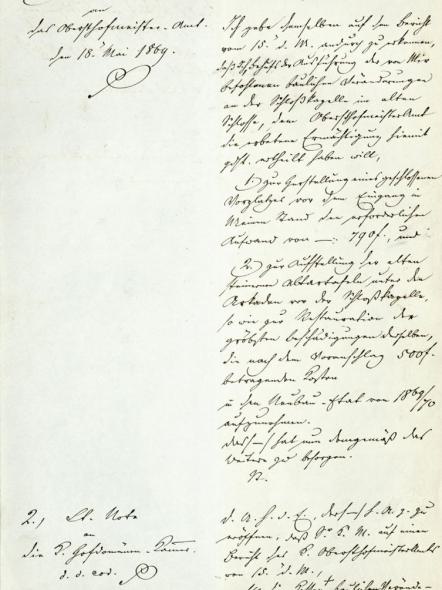 an
das Obersthofmeister-Amt.
den 18. Mai 1869.
Ich gebe demselben auf den Bericht
vom 15. d. M. andurch zu erkennen,
daß Ich behufs der Ausführung der von Mir
befohlenen baulichen Veränderungen
an der Schloßkapelle im alten
Schlosse, dem Obersthofmeisteramt
die erbetene Ermächtigung hiemit
gdst. ertheilt haben will,
1.) zur Herstellung eines geschlossenen
Vorplatzes vor dem Eingang in
Meinen Stand den erforderlichen
Aufwand von —: 790 f., und
2.) zur Aufstellung der alten
steinernen Altartafeln unter den
Arkaden vor der Schloßkapelle,
so wie zur Restauration der
gröbsten Beschädigungen derselben,
die nach dem Voranschlag 500 f.
betragenden Kosten
in den Neubau-Etat von 1869/70
aufzunemen.
Das /—/ hat nun demgemäß das
Weitere zu besorgen.
N.
2.) Et. Note
an
die K. Hofdomänen-Kammer.
d. d. eod.
D. A. H. d. E., ders. /—/ k. A. z. zu
eröffnen, daß Se. K. M. auf einen
Bericht des K. Obersthofmeisteramts
vom 15. d. M.,